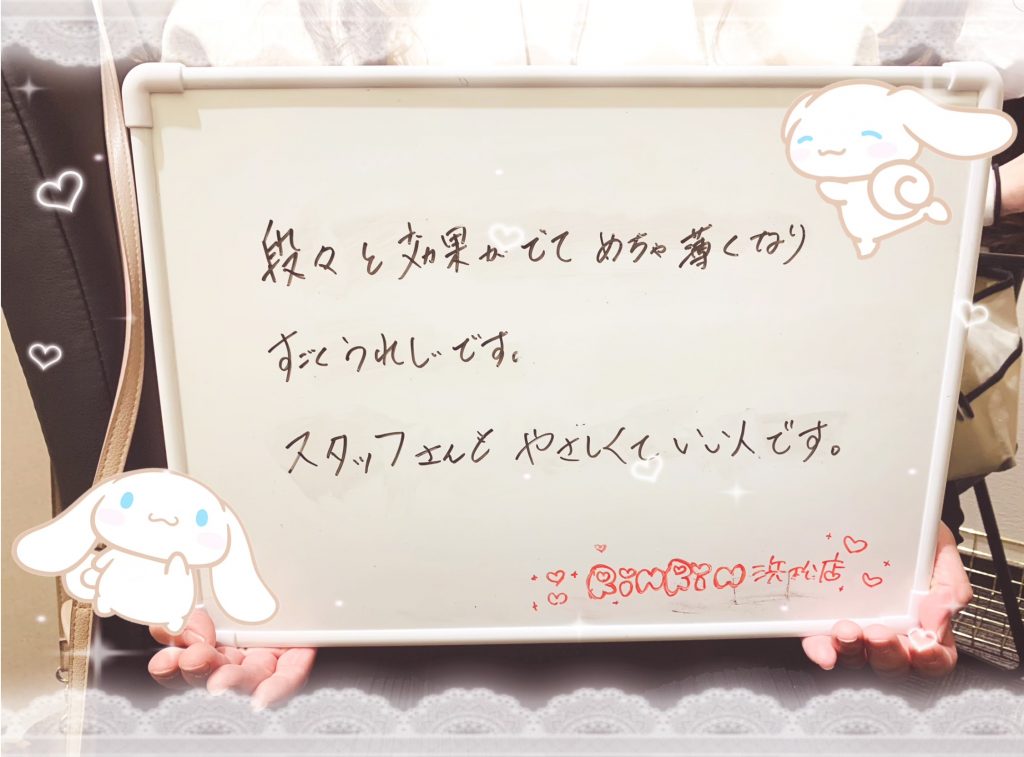 段々と効果がでて めちゃ薄くなり
すごくうれしいです。
スタッフさんも やさしくて いい人です。
RinRin 浜松店